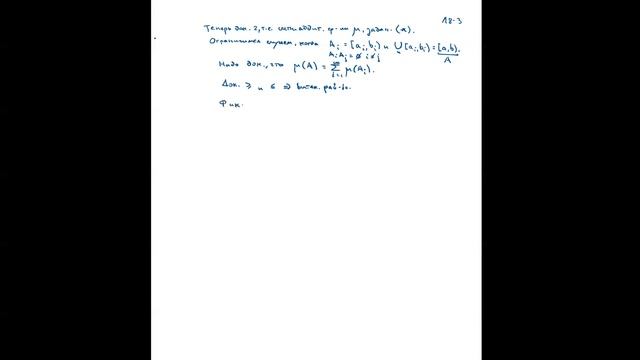 18-3
Теперь док. 2, т.е. счетн. аддит. ф-ии μ, задан. (*).
Ограничимся случаем, когда A_i = [a_i, b_i) и ⋃[a_i, b_i) = [a, b).
A_i A_j = ∅ i ≠ j A
Надо док., что μ(A) = ∑_{i=1}^∞ μ(A_i).
Док. ≥ и ≤ ⇒ вытек. рав-во.
Фик